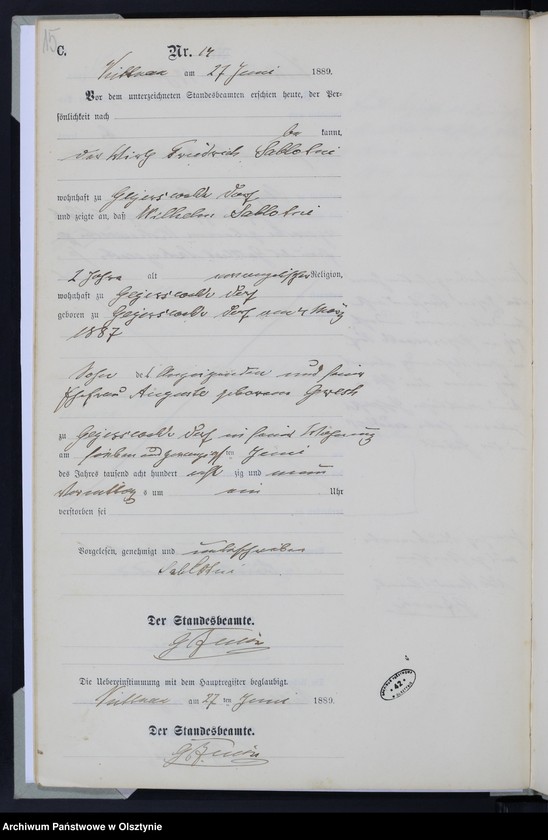 15
C.
Nr. 14
am 27 Juni 1889.
Vor dem unterzeichneten Standesbeamten erschien heute, der Per-
sönlichkeit nach
be kannt,
der Wirth Friedrich Sablotni
wohnhaft zu Geyerswalde Dorf
und zeigte an, daß Wilhelm Sablotni
2 Jahre alt evangelischer Religion,
wohnhaft zu Geyerswalde Dorf
geboren zu Geyerswalde Dorf am März
1887
Sohn des Anzeigenden und seiner
Ehefrau Auguste geborene
zu Geyerswalde Dorf in seiner Wohnung
am sieben und zwanzigsten Juni
des Jahres tausend acht hundert acht zig und neun
Vormittags um ein Uhr
verstorben sei
Vorgelesen, genehmigt und unterschrieben
Sablotni
Der Standesbeamte.
Die Uebereinstimmung mit dem Hauptregister beglaubigt.
am 27 ten Juni 1889.
Der Standesbeamte.
42
Archiwum Państwowe w Olsztynie